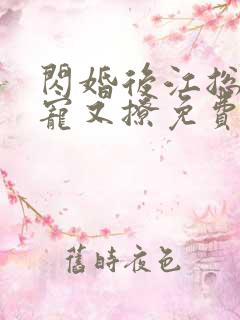 閃婚後江總
寵又撩免費
舊時夜色